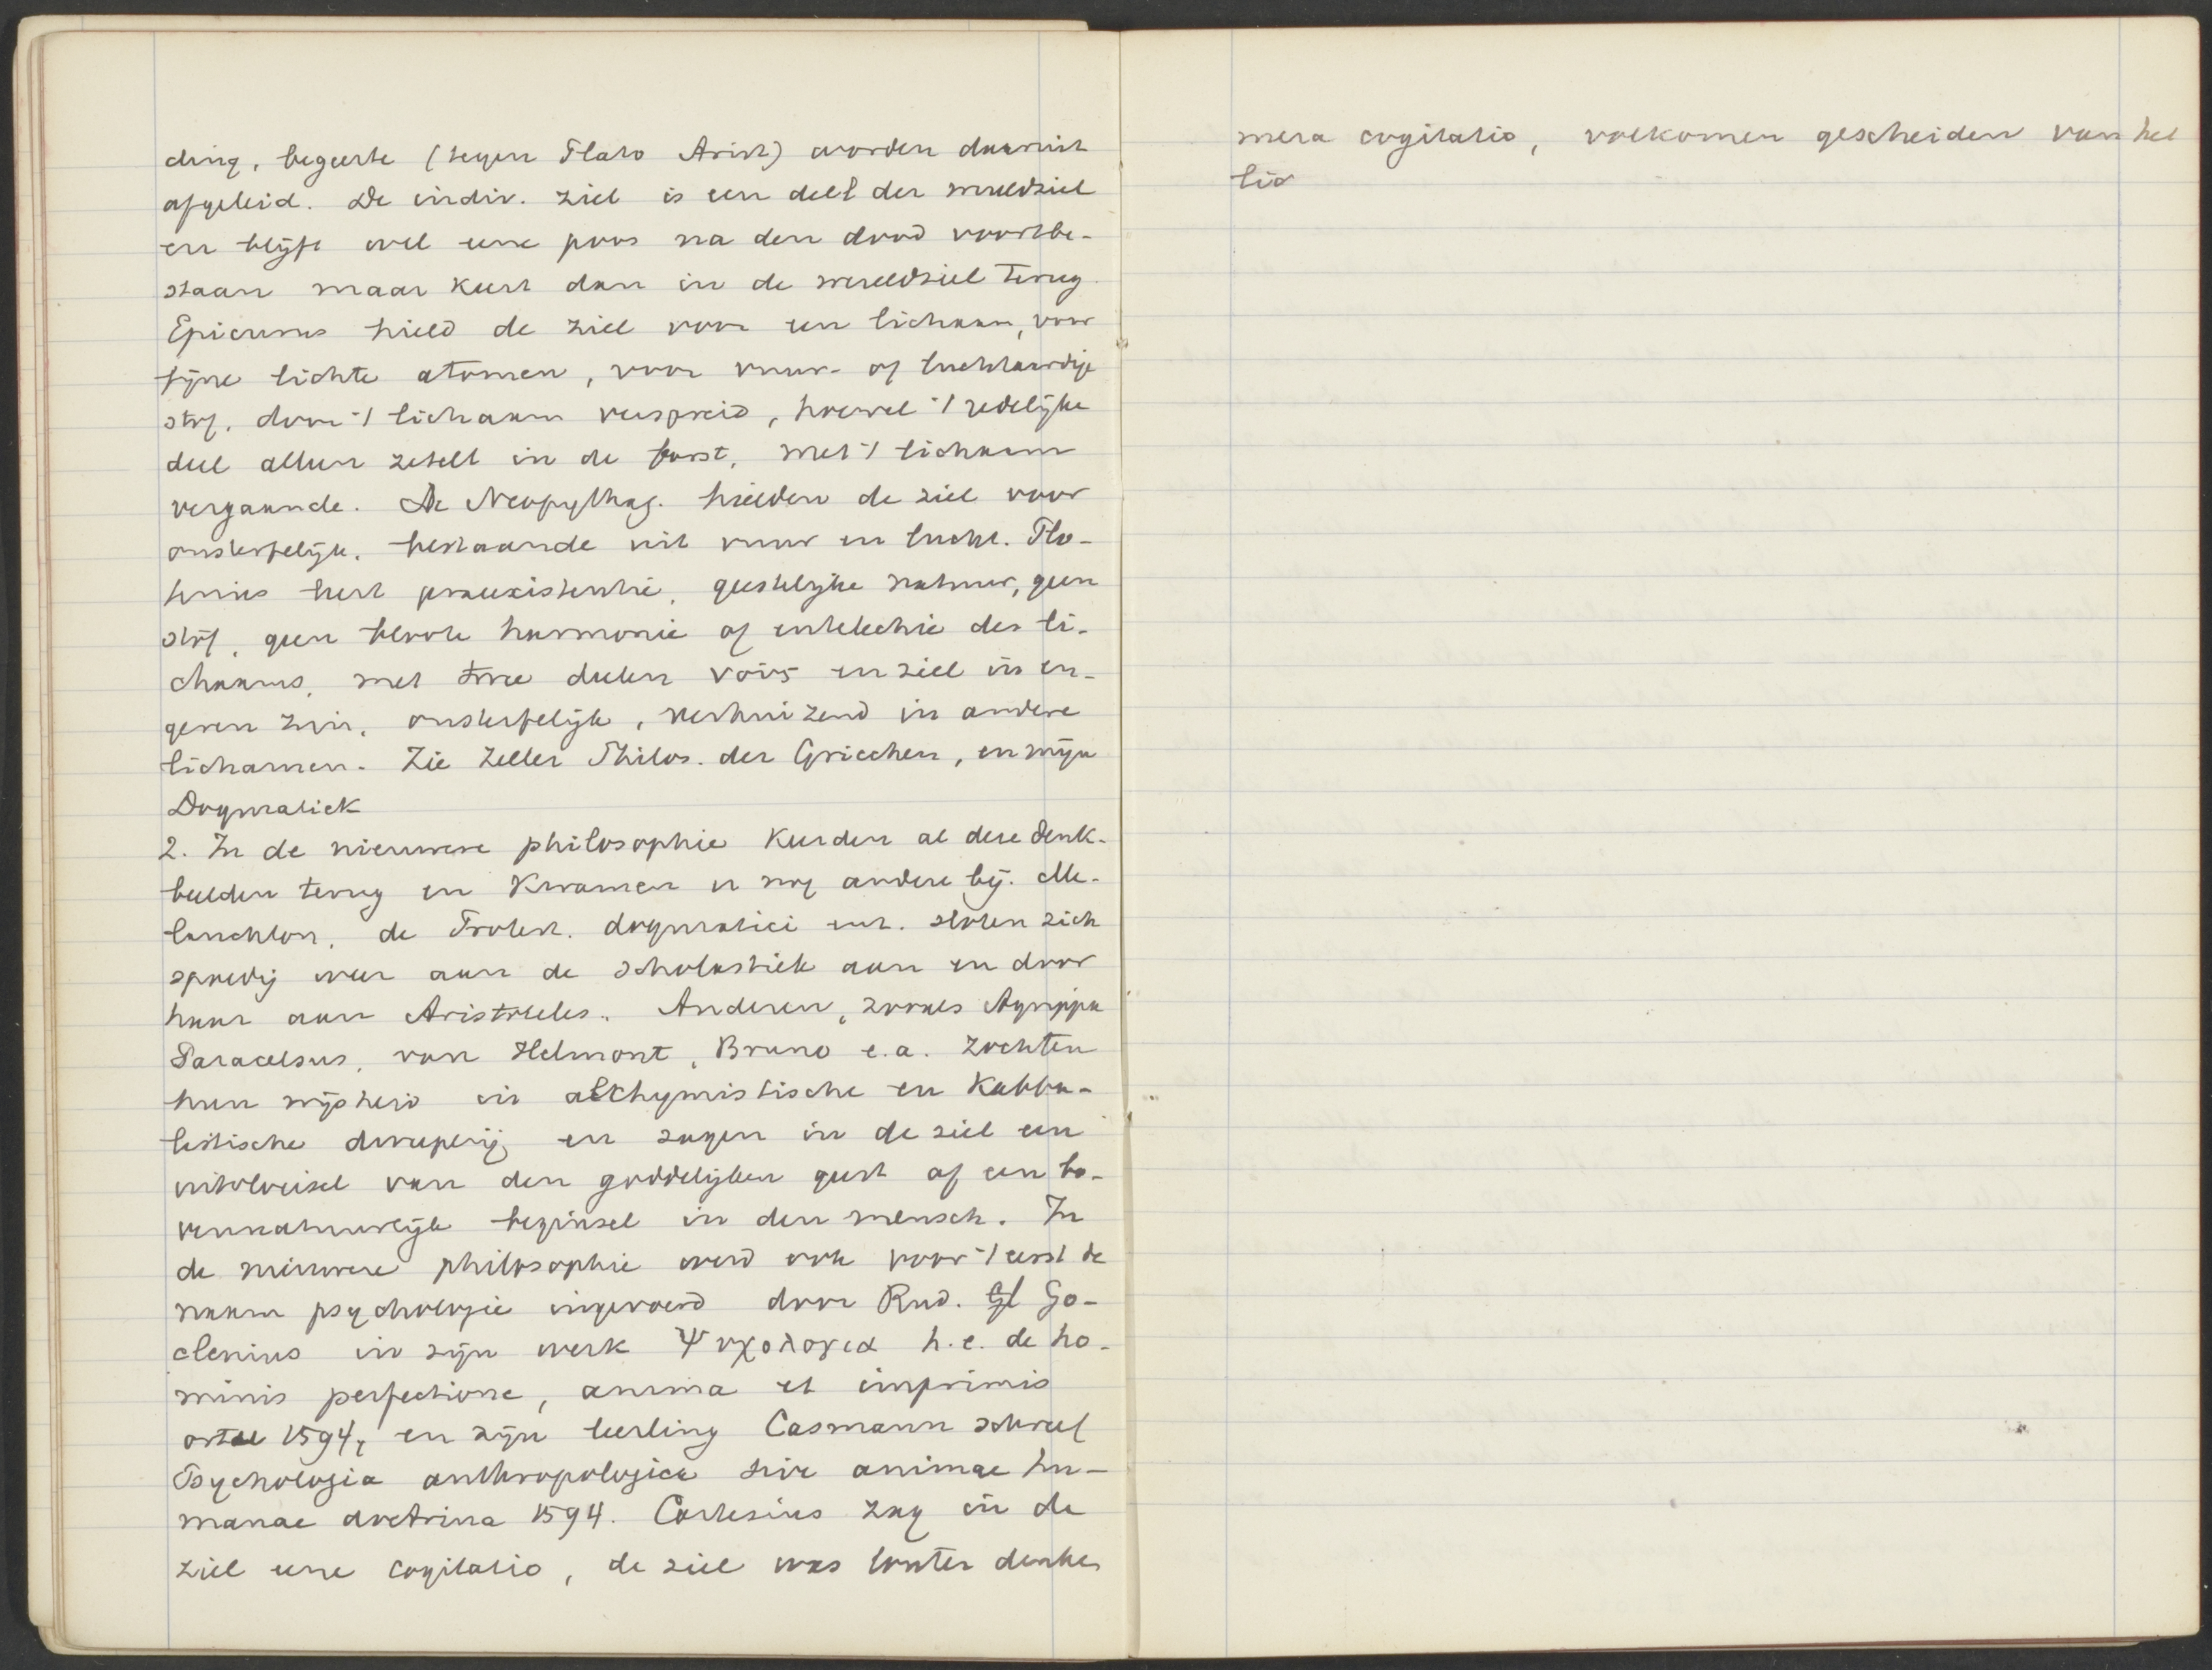 ding, begeerte (tegen Plato Arist) worden daaruit
afgeleid. De indiv. ziel is een deel der wereldziel
en blijft wel eene poos na den dood voortbe-
staan maar keert dan in de wereldziel terug.
Epicurus hield de ziel voor een lichaam, voor
fijne lichte atomen, voor vuur- of luchtaardige
stof, door 't lichaam verspreid, hoewel 't redelijke
deel alleen zetelt in de borst, met 't lichaam
vergaande. De Neopythag. hielden de ziel voor
onsterfelijk, bestaande uit vuur en lucht. Plo-
tinus leert praeexistentie, geestelijke natuur, geen
stof, geen bloote harmonie of entelechie des li-
chaams, met twee deelen νους en ziel in en-
geren zin, onsterfelijk, verhuizend in andere
lichamen. Zie Zeller Philos. der Griechen, en mijn
Dogmatiek
2. In de nieuwere philosophie keerden al deze denk-
beelden terug en kwamen er nog andere bij. Me-
lanchton, de Protest. dogmatici enz. sloten zich
spoedig weer aan de scholastiek aan en door
haar aan Aristoteles. Anderen, zooals Agrippa
Paracelsus, van Helmont, Bruno e.a. zochten
hun wijsheid in alchymistische en Kabba-
listische dweeperij en zagen in de ziel een
uitvloeisel van den goddelijken geest of een bo-
vennatuurlijk beginsel in den mensch. In
de nieuwere philosophie werd ook voor 't eerst de
naam psychologie ingevoerd door Rud. Gl Go-
clenius in zijn werk Ψυχολογια h.e. de ho-
minis perfectione, anima et imprimis
ortu 1594, en zijn leerling Casmann schreef
Psychologia anthropologica sive animae hu-
manae doctrina 1594. Cartesius zag in de
ziel eene cogitatio, de ziel was louter denken
mera cogitatio, volkomen gescheiden van het
lic